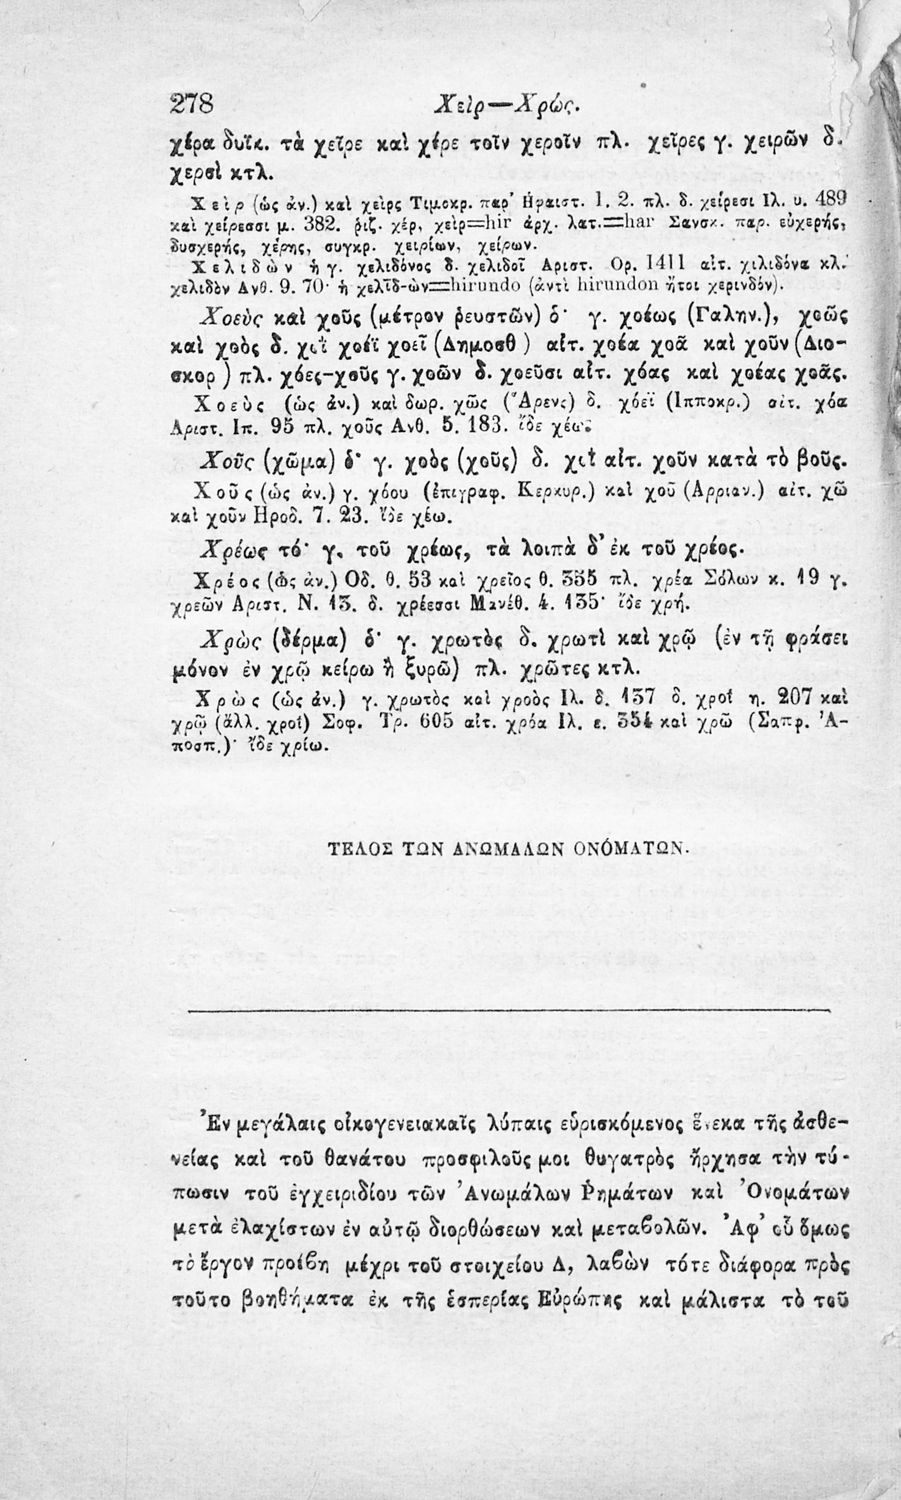 278 Χεὶρ—Χρώς.
χέρα δυϊκ. τὰ χεῖρε καὶ χέρε τοῖν χεροῖν πλ. χεῖρες γ. χειρῶν δ.
χερσὶ κτλ.
Χεὶρ (ὡς ἀν.) καὶ χεὶρς Τιμοκρ. παρ’ Ἡφαιστ. 1. 2. πλ. δ. χείρεσι Ιλ. υ. 489
καὶ χείρεσσι μ. 382. ῥιζ. χέρ, χεὶρ=hir ἀρχ. λατ.=har Σανσκ. παρ. εὐχερής,
δυσχερής, χέρης, συγκρ. χειρίων, χείρων.
Χελιδὼν ἡ γ. χελιδόνος δ. χελιδοῖ Αριστ. Ορ. 1411 αἰτ. χιλιδόνα κλ.
χελιδὸν Ανθ. 9. 70· ἡ χελῖδ-ὼν=hirundo (ἀντὶ hirundon ἤτοι χερινδόν).
Χοεὺς καὶ χοῦς (μέτρον ῥευστῶν) ὁ· γ. χοέως (Γαλην.), χοῶς
καὶ χοὸς δ. χοῒ χοέϊ χοεῖ (Δημοσθ ) αἰτ. χοέα χοᾶ καὶ χοῦν (Διο-
σκορ ) πλ. χόες-χοῦς γ. χοῶν δ. χοεῦσι αἰτ. χόας καὶ χοέας χοᾶς.
Χοεὺς (ὡς ἀν.) καὶ δωρ. χῶς (Ἀρενς) δ. χόεϊ (Ιπποκρ.) αἰτ. χόα
Αριστ. Ιπ. 95 πλ. χοῦς Ανθ. 5. 183. ἴδε χέω.
Χοῦς (χῶμα) ὁ· γ. χοὸς (χοῦς) δ. χοῒ αἰτ. χοῦν κατὰ τὸ βοῦς.
Χοῦς (ὡς ἀν.) γ. χόου (ἐπιγραφ. Κερκυρ.) καὶ χοῦ (Αρριαν.) αἰτ. χῶ
καὶ χοῦν Ηροδ. 7. 23. ἴδε χέω.
Χρέως τό· γ. τοῦ χρέως, τὰ λοιπὰ δ’ ἐκ τοῦ χρέος.
Χρέος (ὡς ἀν.) Οδ. θ. 53 καὶ χρεῖος θ. 355 πλ. χρέα Σόλων κ. 19 γ.
χρεῶν Αριστ. Ν. 13. δ. χρέεσσι Μανέθ. 4. 135· ἴδε χρή.
Χρὼς (δέρμα) ὁ· γ. χρωτὸς δ. χρωτὶ καὶ χρῷ (ἐν τῇ φράσει
μόνον ἐν χρῷ κείρω ἢ ξυρῶ) πλ. χρῶτες κτλ.
Χρὼς (ὡς ἀν.) γ. χρωτὸς καὶ χροὸς Ιλ. δ. 137 δ. χροῒ η. 207 καὶ
χρῷ (ἄλλ. χροῒ) Σοφ. Τρ. 605 αἰτ. χρόα Ιλ. ε. 354 καὶ χρῶ (Σαπφ. Ἀ-
ποσπ.)· ἴδε χρίω.
ΤΕΛΟΣ ΤΩΝ ΑΝΩΜΑΛΩΝ ΟΝΟΜΑΤΩΝ.
Ἐν μεγάλαις οἰκογενειακαῖς λύπαις εὑρισκόμενος ἕνεκα τῆς ἀσθε-
νείας καὶ τοῦ θανάτου προσφιλοῦς μοι θυγατρὸς ἤρχησα τὴν τύ-
πωσιν τοῦ ἐγχειριδίου τῶν Ἀνωμάλων Ῥημάτων καὶ Ὀνομάτων
μετὰ ἐλαχίστων ἐν αὐτῷ διορθώσεων καὶ μεταβολῶν. Ἀφ’ οὗ ὅμως
τὸ ἔργον προέβη μέχρι τοῦ στοιχείου Δ, λαβὼν τότε διάφορα πρὸς
τοῦτο βοηθήματα ἐκ τῆς ἑσπερίας Εὐρώπης καὶ μάλιστα τὸ τοῦ